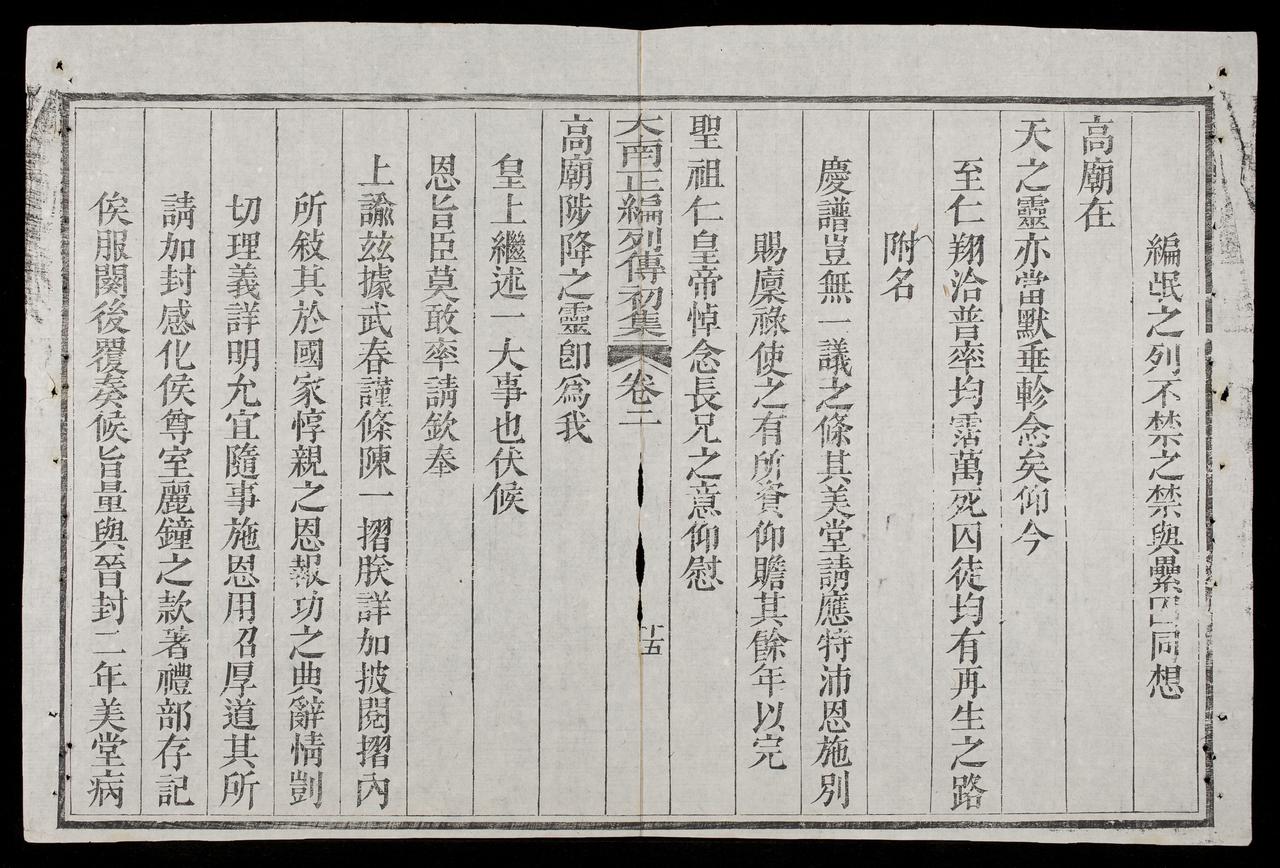 編氓之列不禁之禁與纍囚同想
高廟在
天之靈亦當默垂軫念矣仰今
至仁翔洽普率均霑萬死囚徒均有再生之路
附名
慶譜豈無一議之條其美堂請應特沛恩施別
賜廩祿使之有所資仰贍其餘年以完
聖祖仁皇帝悼念長兄之意仰慰
大南正編列傳初集 卷二 十五
高廟陟降之靈卽爲我
皇上繼述一大事也伏候
恩旨臣莫敢率請欽奉
上諭茲據武春謹條陳一摺朕詳加披閱摺內
所敍其於國家惇親之恩報功之典辭情剴
切理義詳明允宜隨事施恩用召厚道其所
請加封感化侯尊室麗鐘之款著禮部存記
俟服闋後覆奏候旨量與晉封二年美堂病